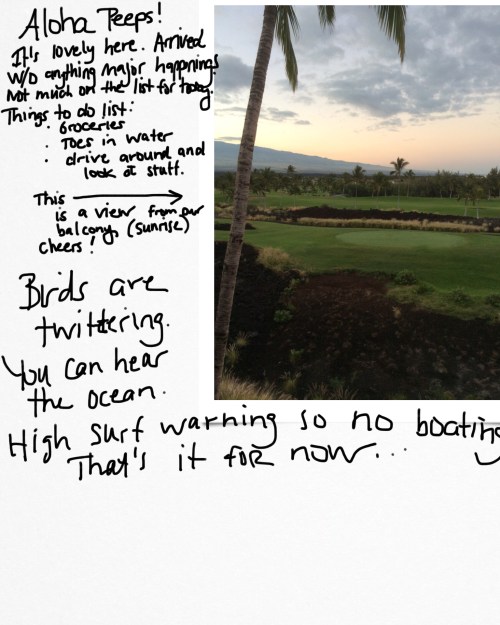 Aloha Peeps!
It's lovely here. Arrived
w/o anything major happening.
Not much on the list for today.
Things to do list:
· Groceries
· Toes in water
· drive around and
look at stuff.
This →
is a view from our
balcony (sunrise)
Cheers!
Birds are
twittering.
You can hear
the ocean.
High surf warning so no boating
That's it for now...